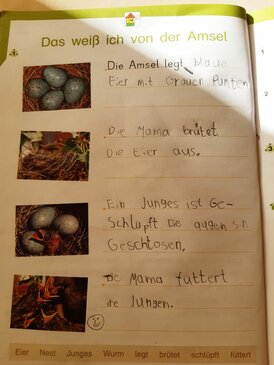 Das weiß ich von der Amsel
Die Amsel legt blaue
Eier mit Grauen Punten.
Die Mama brütet
Die Eier aus.
Ein Junges ist Ge-
Schlüpft Die augen sin
Geschlosen.
Die Mama füttert
ire Jungen.
Eier Nest Junges Wurm legt brütet schlüpft füttert